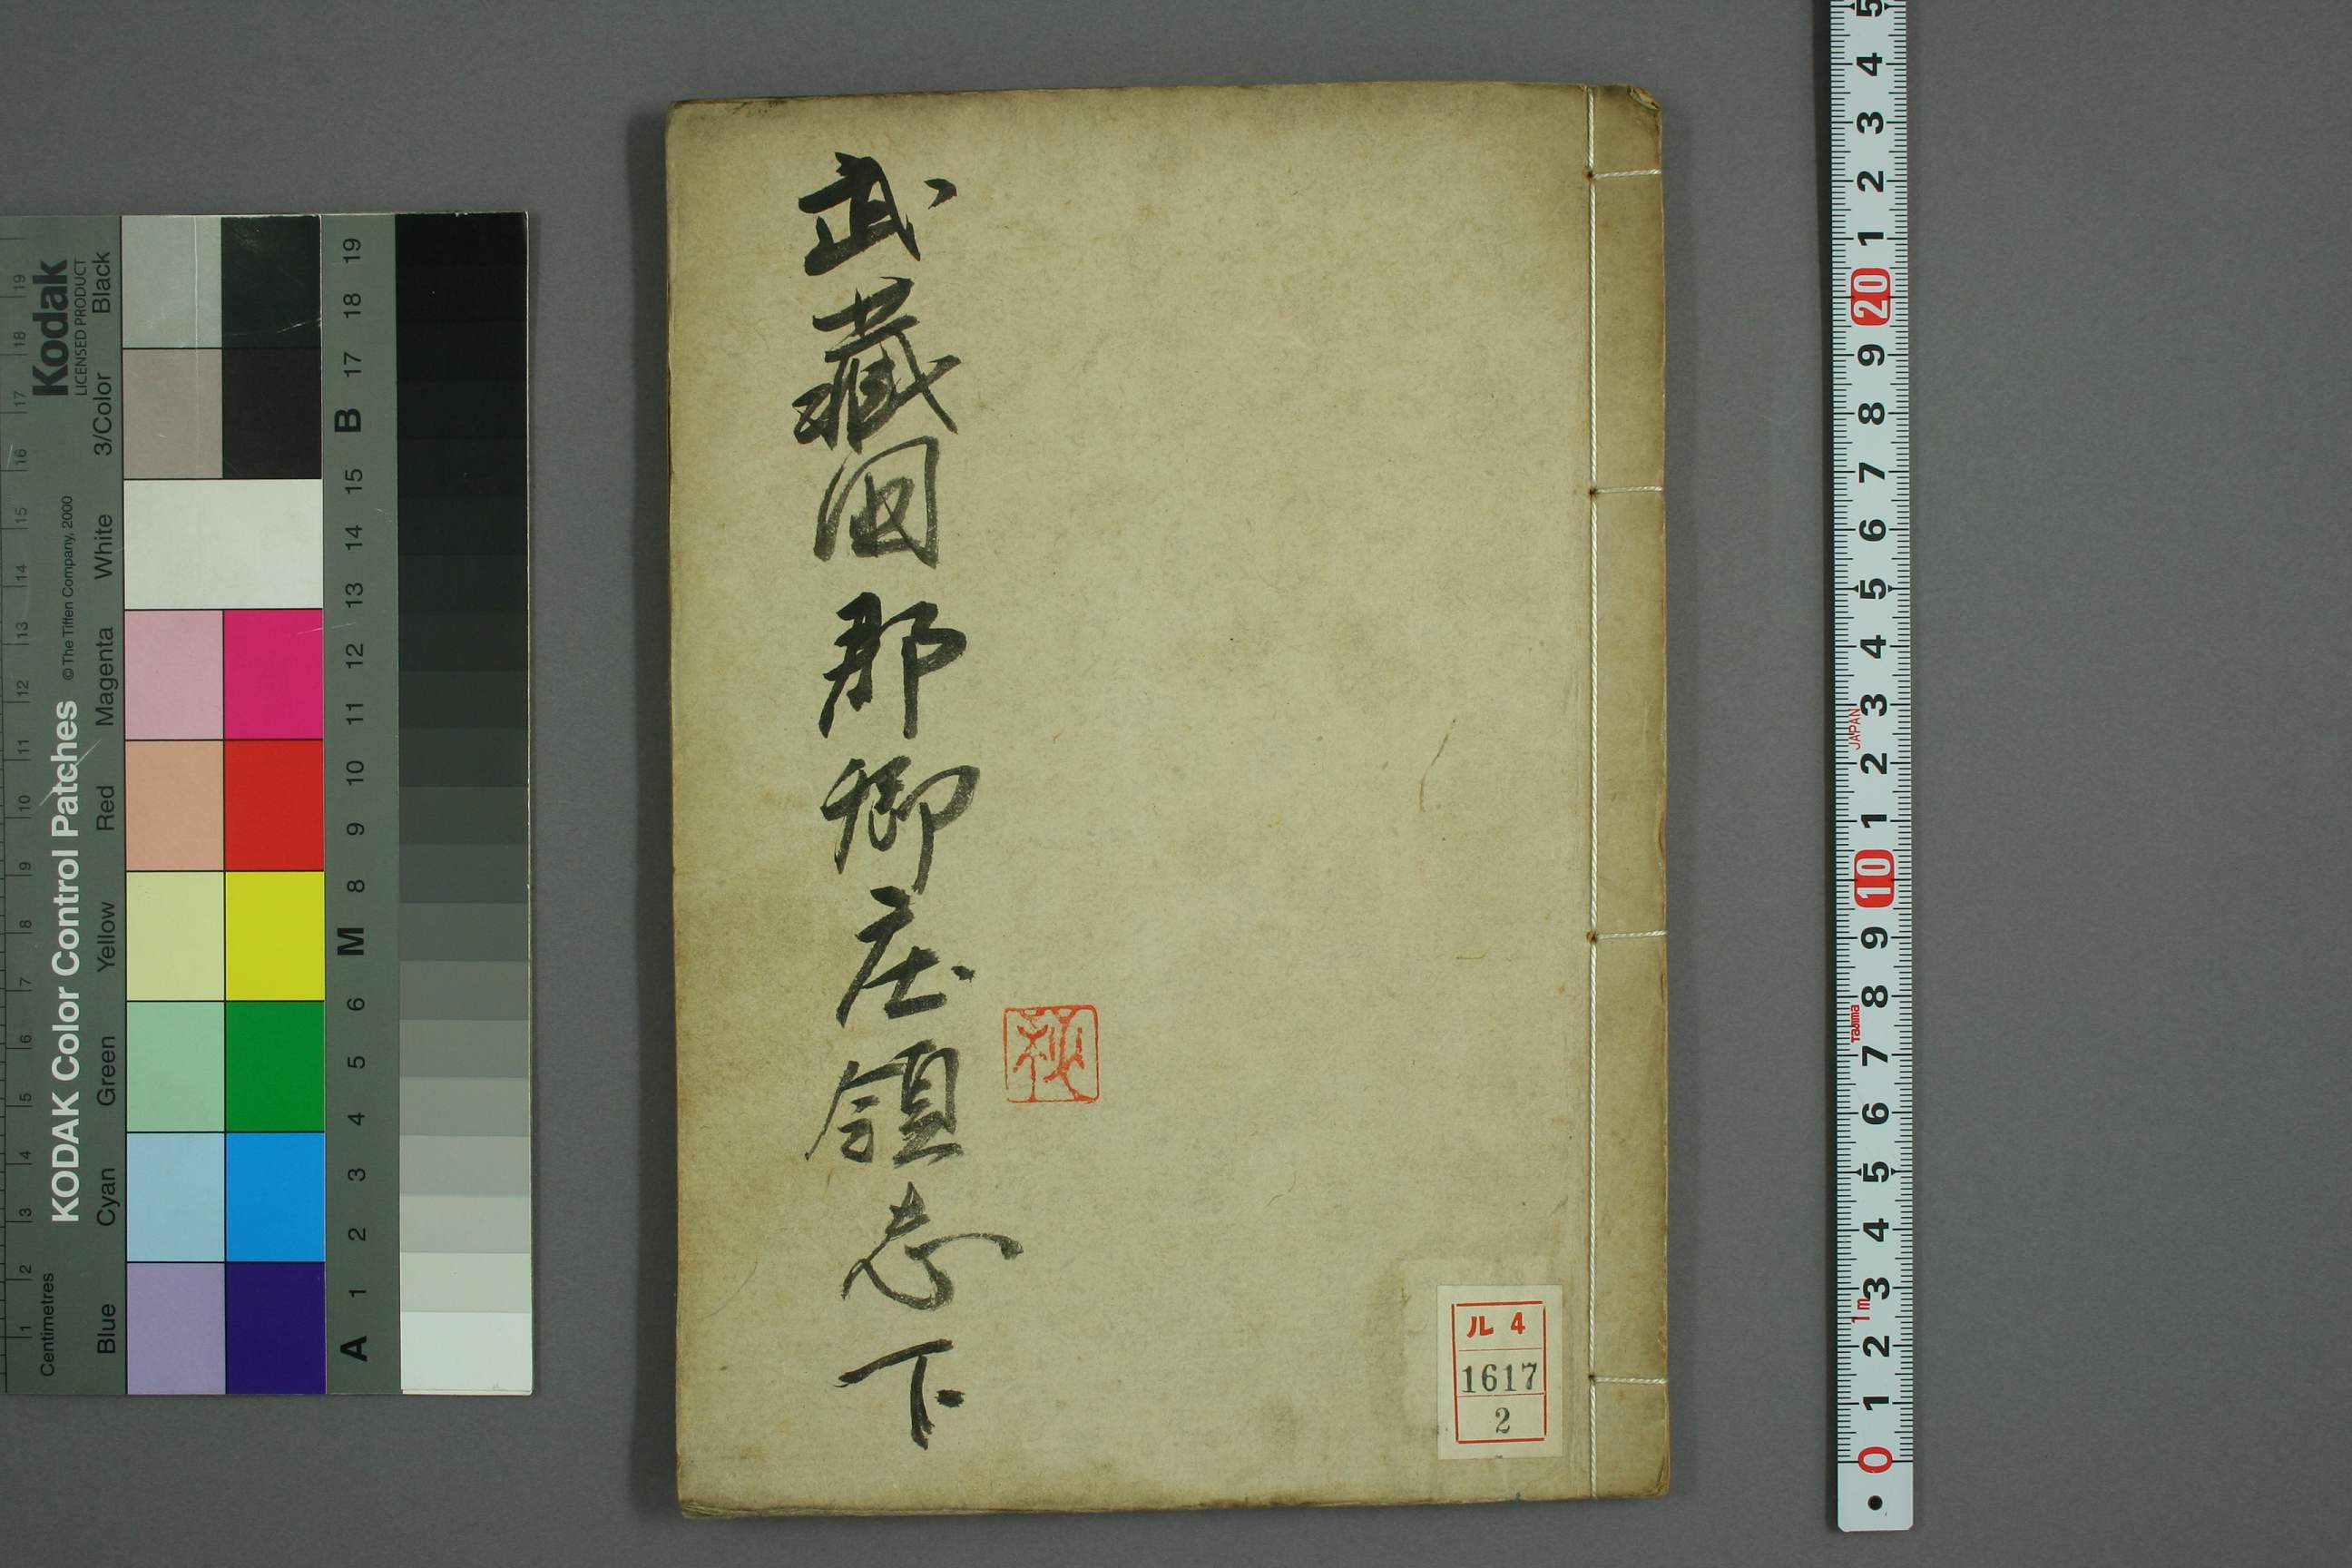 武藏国郡郷庄領志下
ル 4
1617
2
Kodak
LICENSED PRODUCT
KODAK Color Control Patches © The Tiffen Company, 2000
Centimetres
Blue Cyan Green Yellow Red Magenta White 3/Color Black
1 2 3 4 5 6 7 8 9 10 11 12 13 14 15 16 17 18 19
A 1 2 3 4 5 6 M 8 9 10 11 12 13 14 15 B 17 18 19
0 1 2 3 4 5 6 7 8 9 10 1 2 3 4 5 6 7 8 9 20 1 2 3 4 5
1m
Tajima
JAPAN